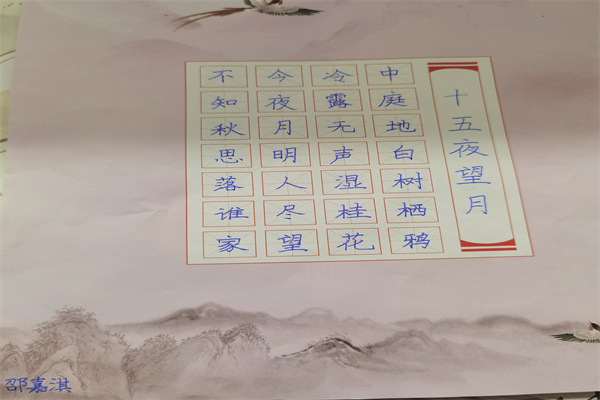 十五夜望月
中庭地白树栖鸦
冷露无声湿桂花
今夜月明人尽望
不知秋思落谁家
邵嘉淇